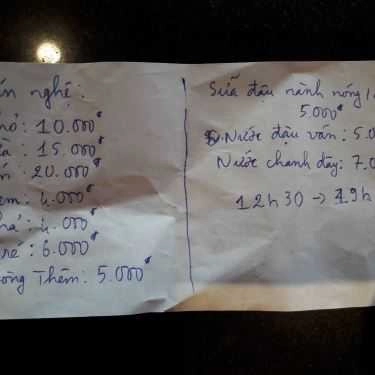 nghệ:
10.000đ
15.000đ
20.000đ
4.000đ
4.000đ
6.000đ
Thêm: 5.000đ
Sữa đậu nành nóng/
5.000đ
Nước đậu ván: 5.0
Nước chanh dây: 7.0
12h30 → 19h